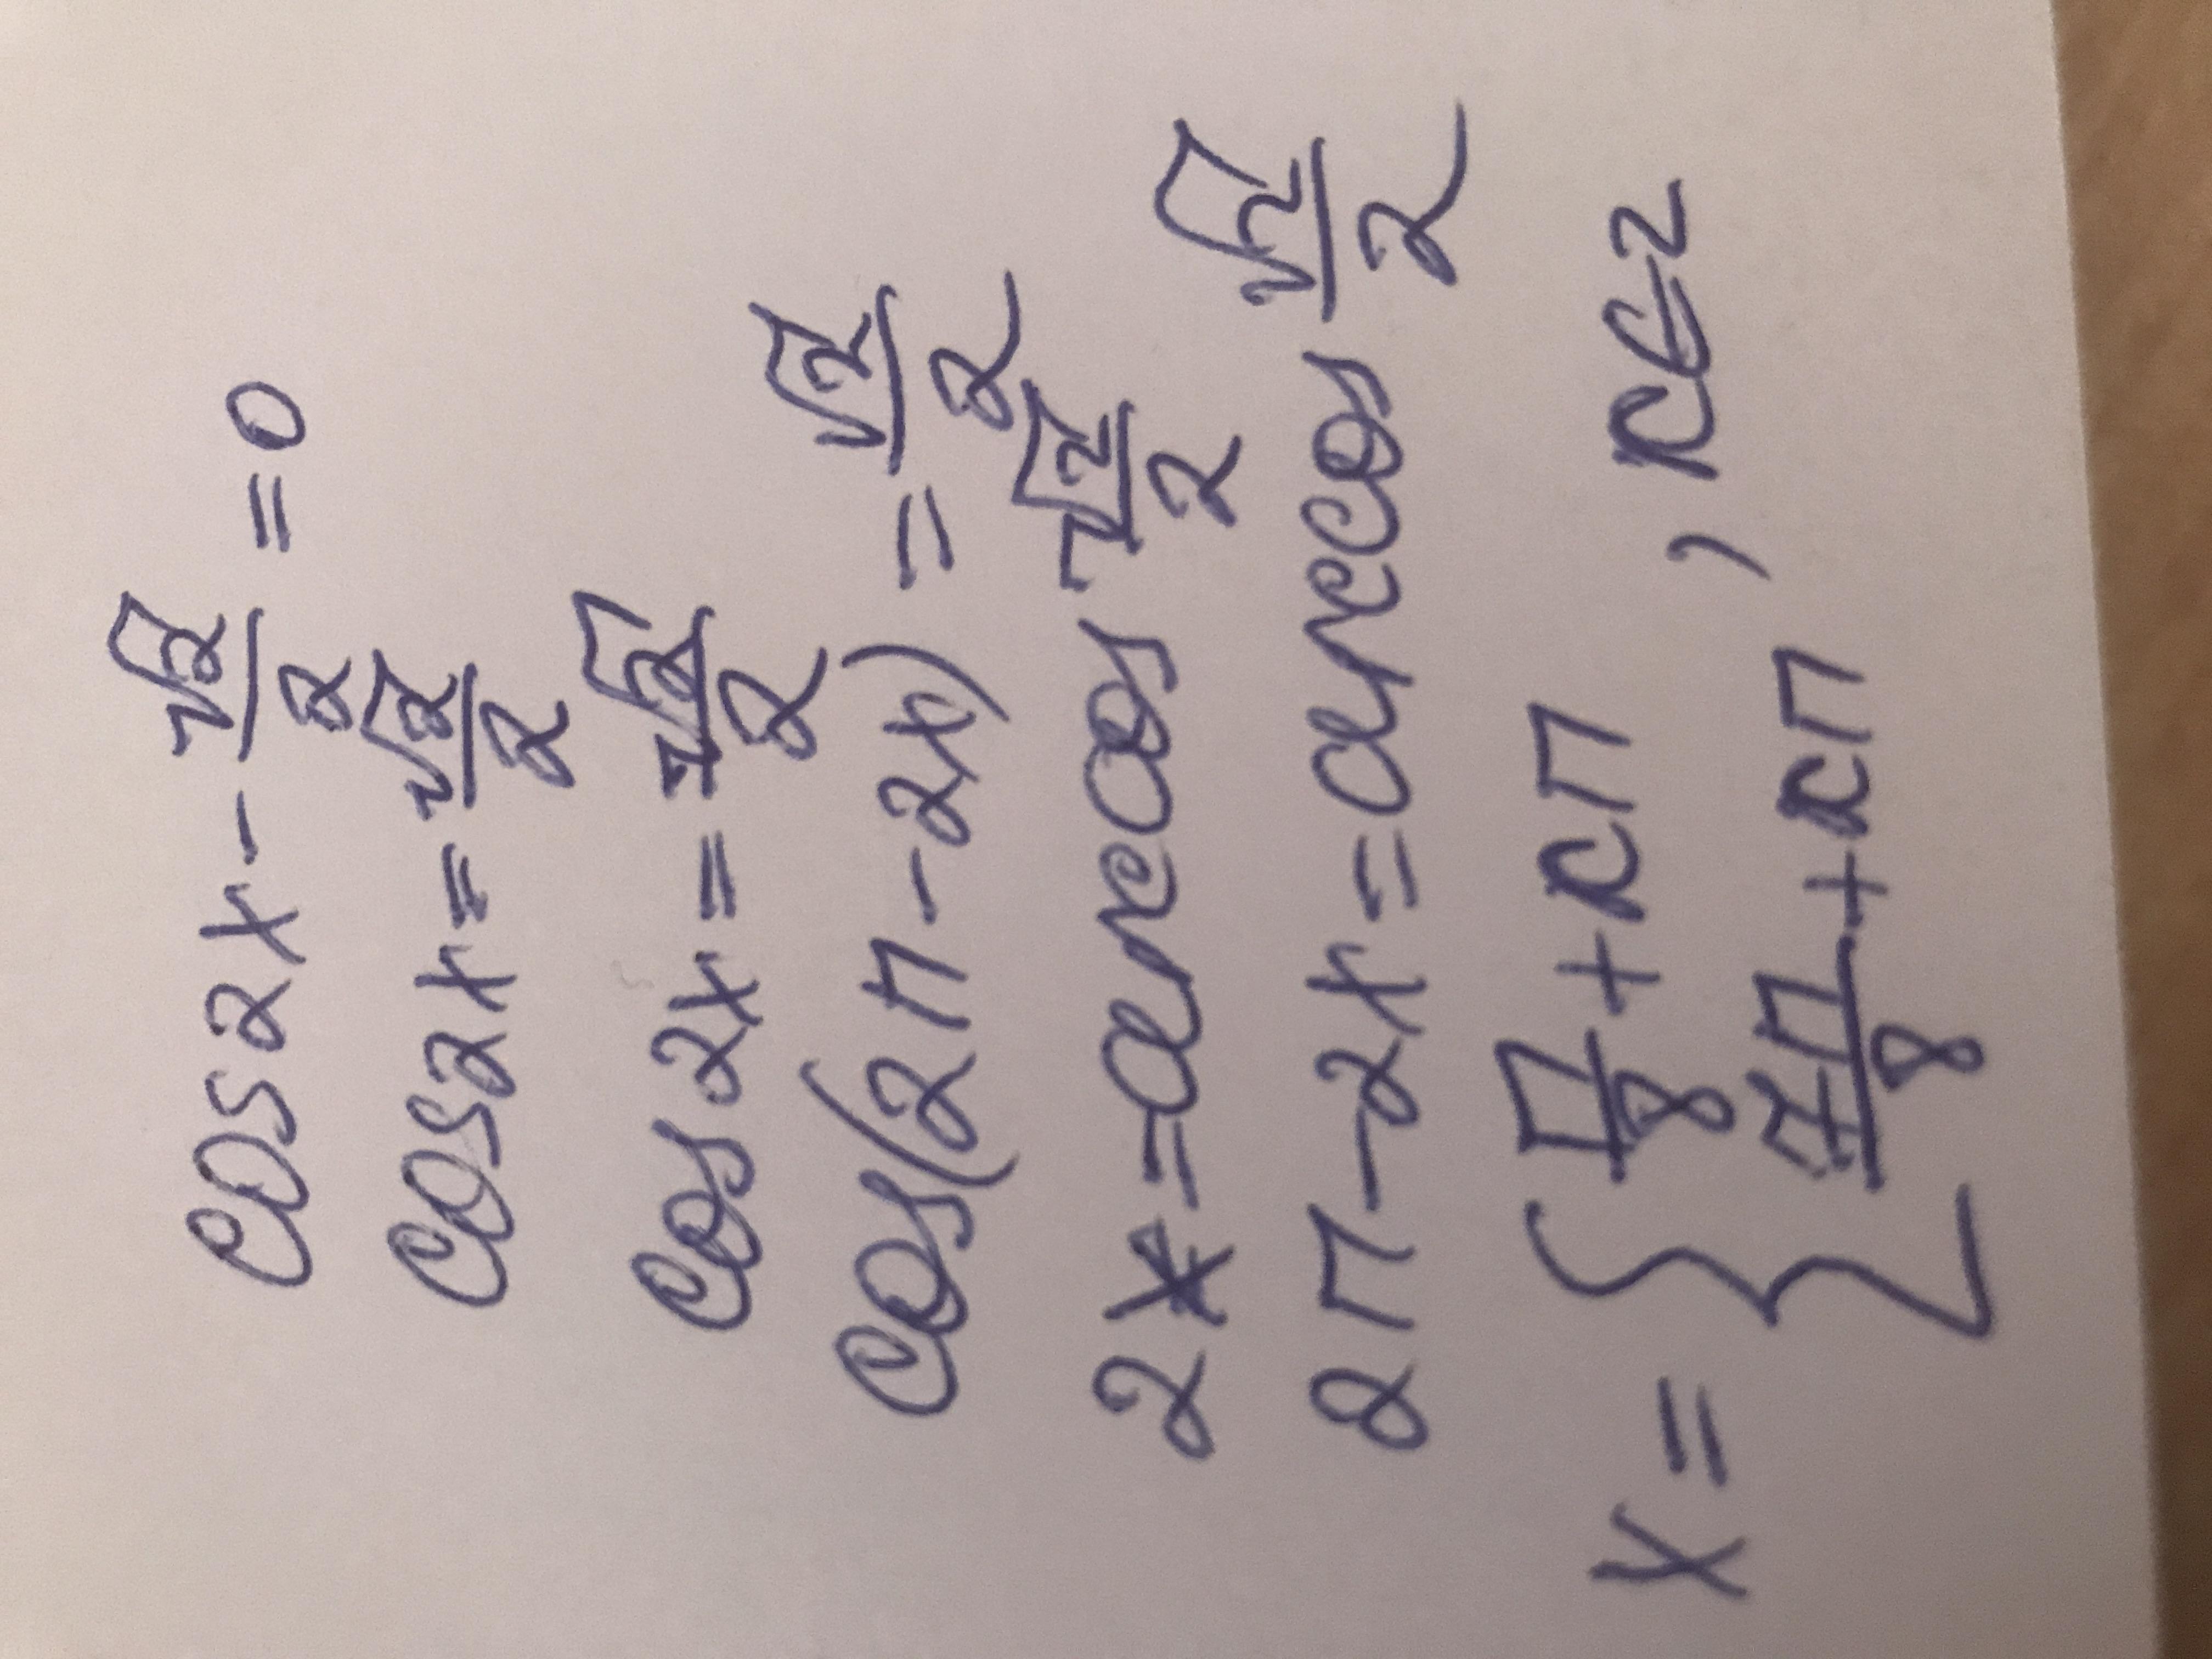 cos2x - √2/2 = 0
cos2x = √2/2
cos2x = √2/2
cos(2π - 2x) = √2/2
2x = arccos √2/2
2π - 2x = arccos √2/2
x = { π/8 + kπ
7π/8 + kπ , k∈Z